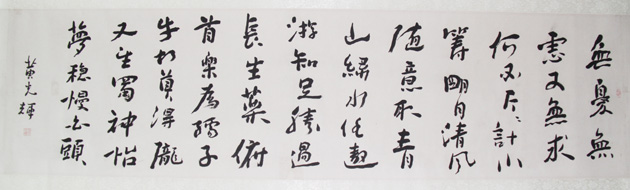 無憂無
慮又無求
何必斤斤計小
籌明月清風
隨意取青
山綠水任遨
游知足勝過
長生藥俯
首樂為孺子
牛切莫得隴
又望蜀神怡
夢穩慢白頭
黃光輝